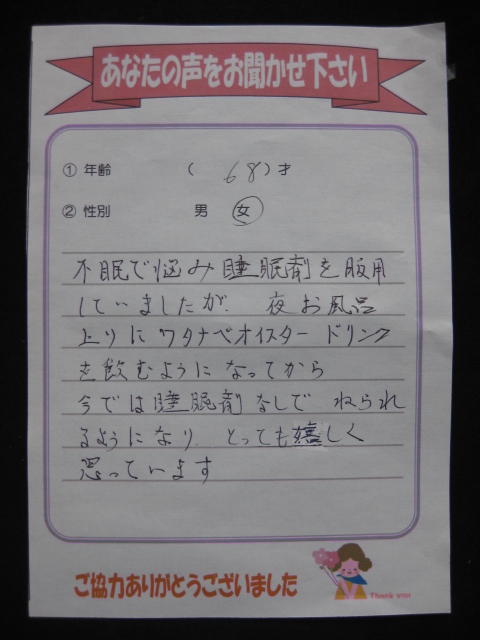 あなたの声をお聞かせ下さい
① 年齢 ( 68 ) 才
② 性別 男 女
不眠で悩み睡眠剤を服用
していましたが、夜お風呂
上りにワタナベオイスタードリンク
を飲むようになってから
今では睡眠剤なしで ねられ
るようになり とっても嬉しく
思っています
ご協力ありがとうございました
Thank you